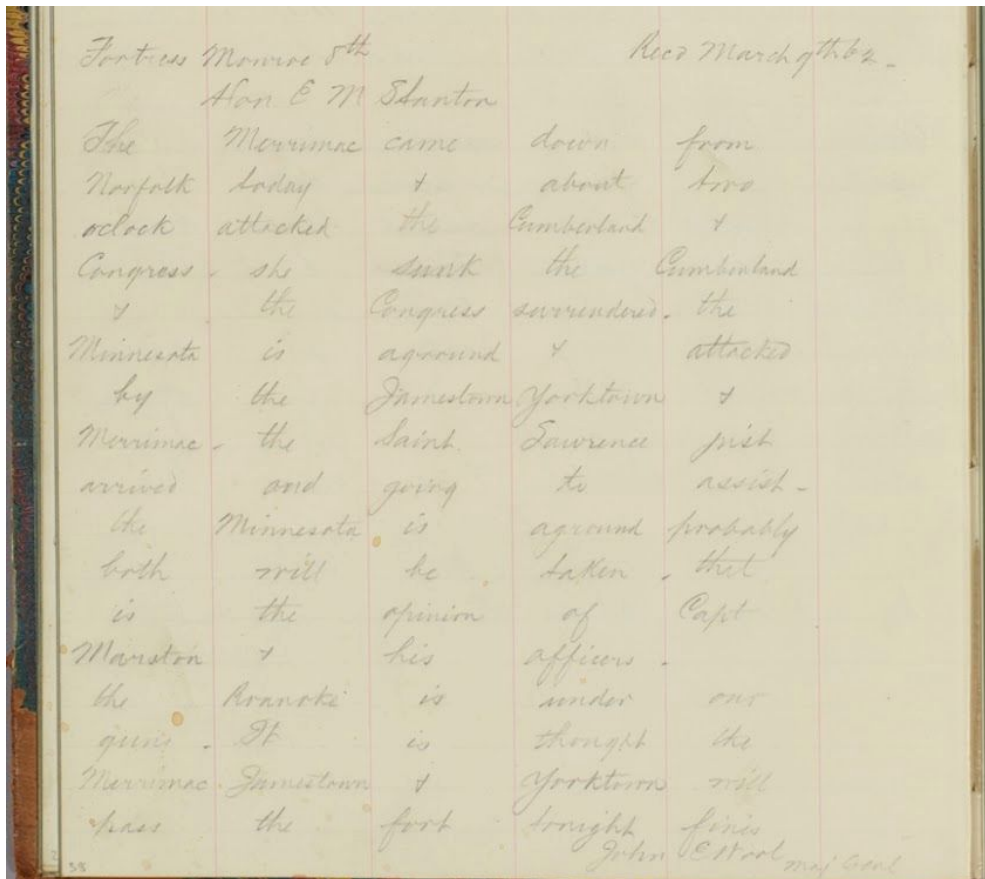 Fortress Monroe 8th Recd March 9th 62.
Hon E M Stanton
The Merrimac came down from
Norfolk today & about two
oclock attacked the Cumberland &
Congress. she sunk the Cumberland
& the Congress surrendered. the
Minnesota is aground & attacked
by the Jamestown Yorktown &
Merrimac. the Saint Lawrence just
arrived and going to assist.
the Minnesota is aground probably
both will be taken. that
is the opinion of Capt
Marston & his officers.
the Roanoke is under our
guns. It is thought the
Merrimac Jamestown & Yorktown will
pass the fort tonight finis
John E Wool Maj Genl
38